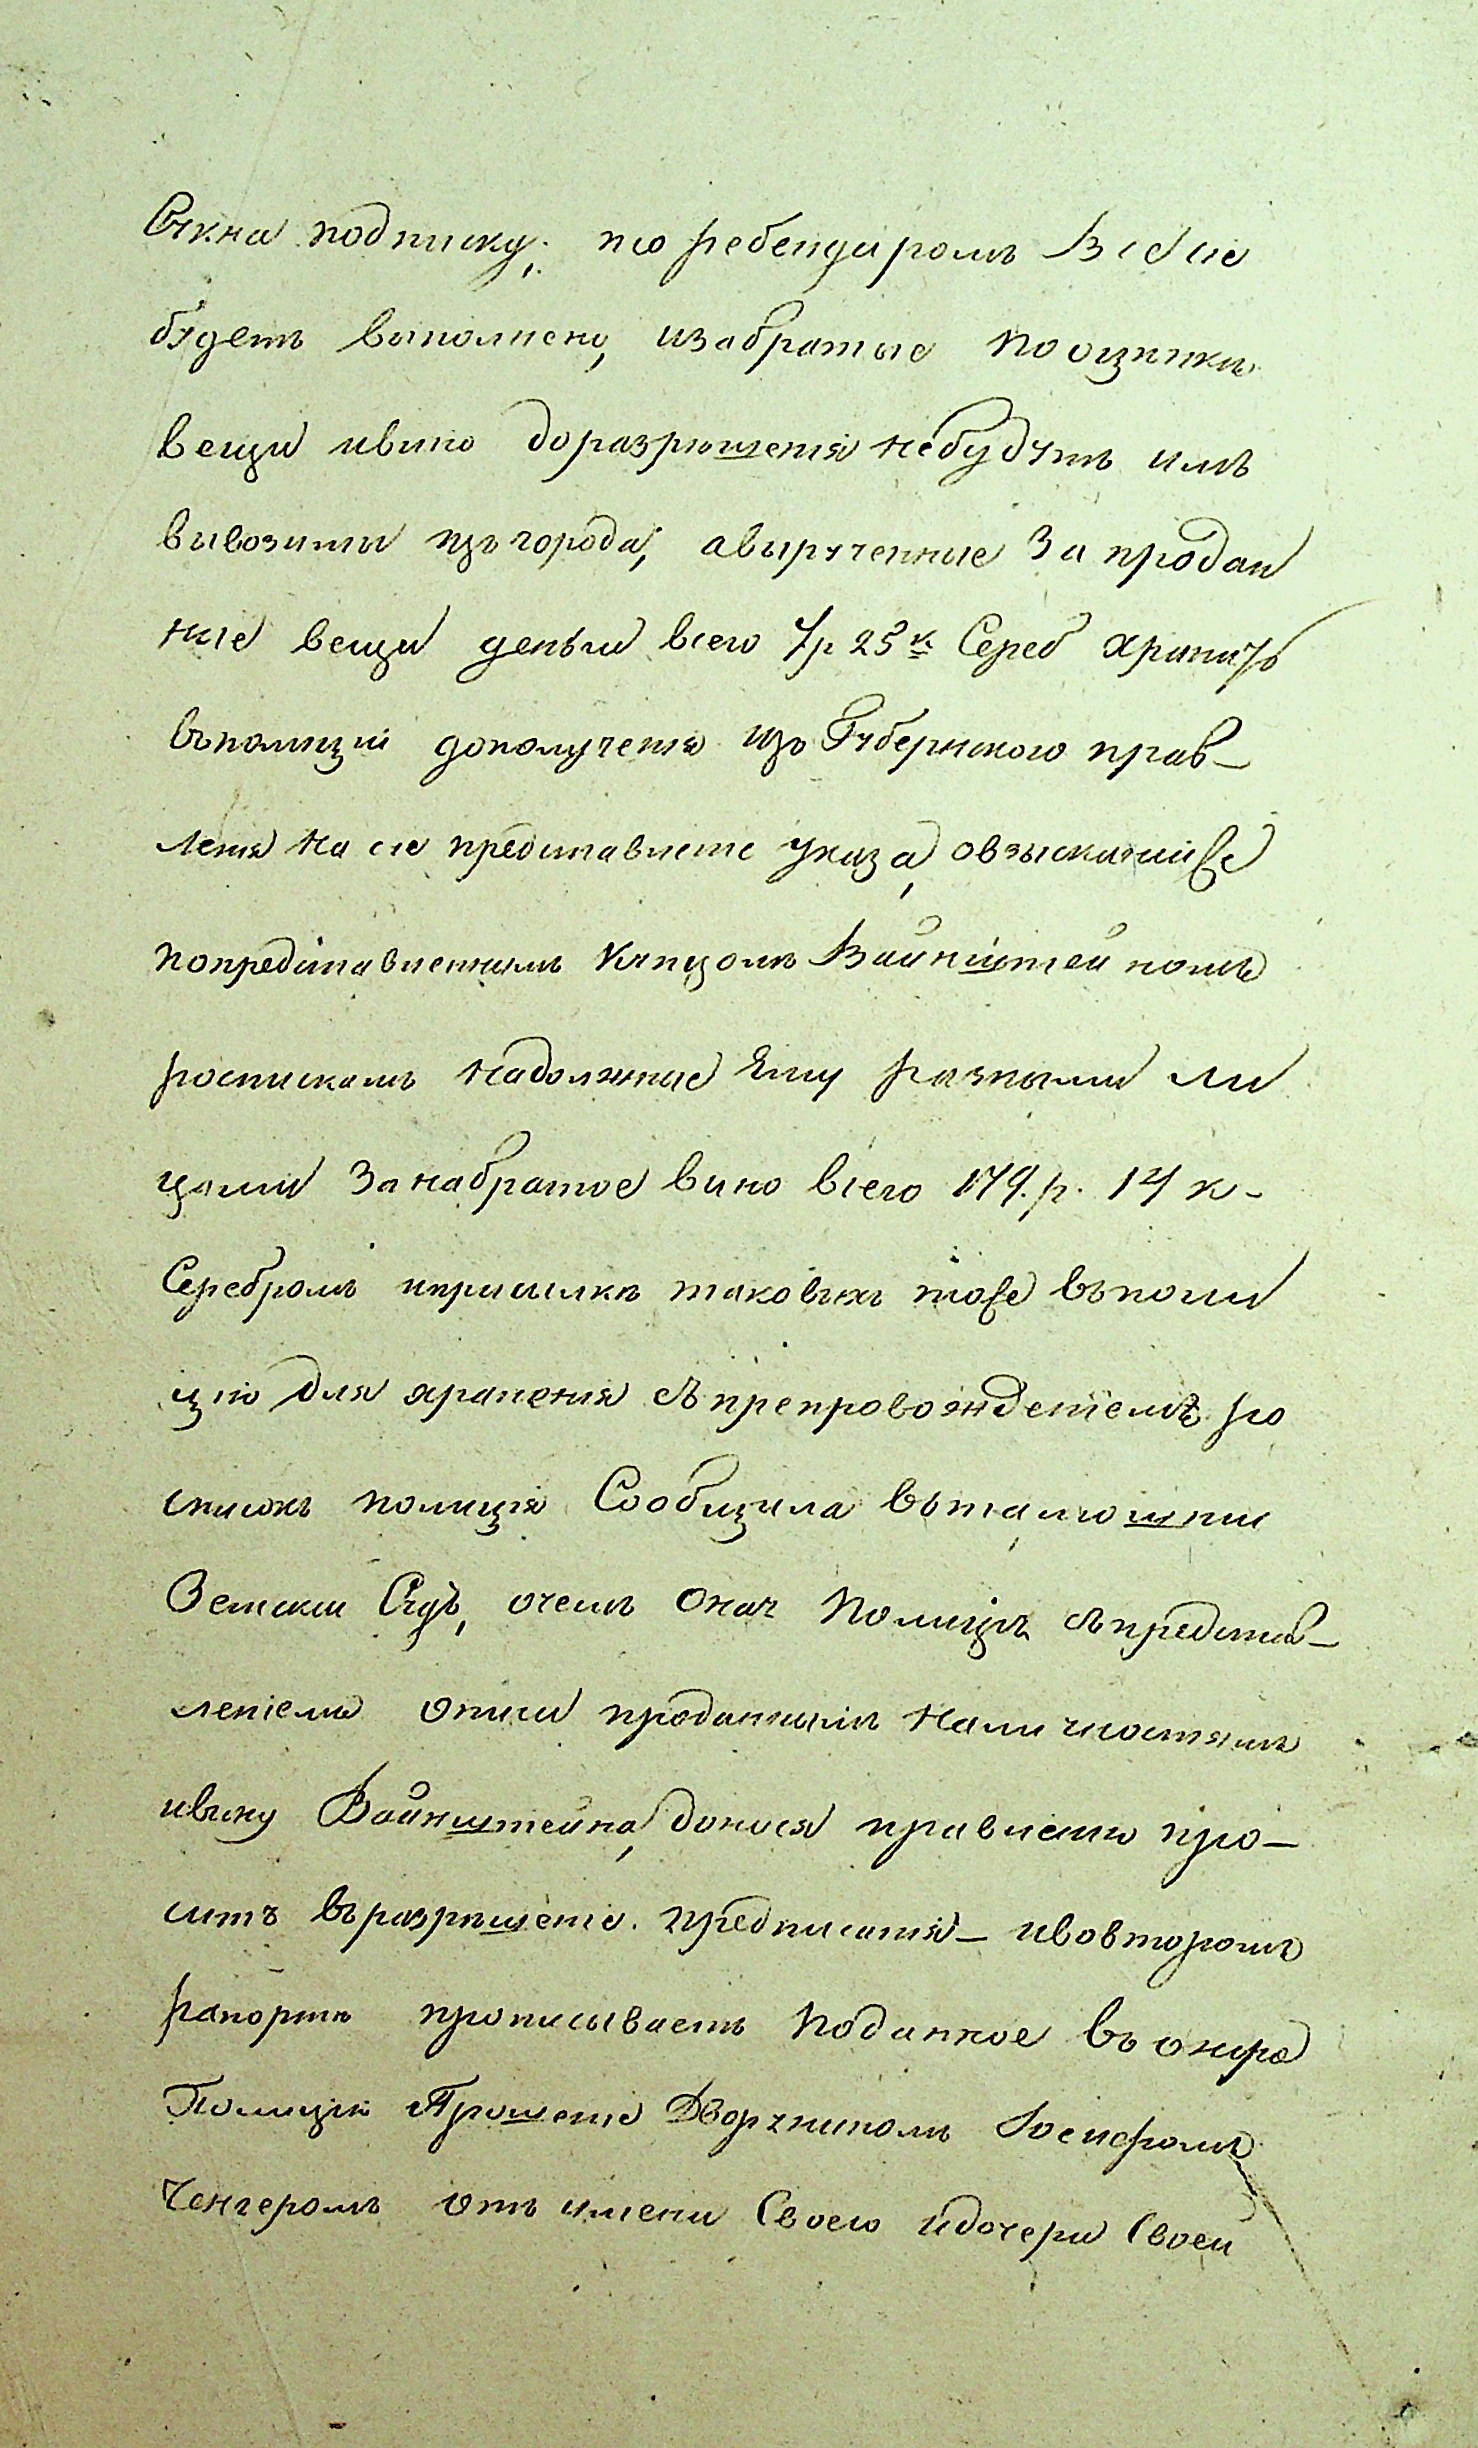 Сукна подписку, что ребендаромъ все сіе
будетъ выполнено, изабратые пооценкѣ
вещи ивино доразрешенія небудутъ имъ
вывозимы изъ города, авырученные за продан
ные вещи деньги всего 7р 25 к. Сереб хранить
въполиціи дополученія изъ Губернского прав-
ленія на сіе представленіе указа, овзысканіи же
попредставленнымъ Купцомъ Вайнштейномъ
роспискамъ надолжные Ему разными ли
цами за набратое вино всего 179.р. 14 к-
Серебромъ иприсылкѣ таковыхъ тоже въполи
цію для храненія съ препровожденіемъ ро
списокъ полиція Сообщила въ
Земскій Судъ, очемъ Оная Полиція съпредстав-
леніемъ описи проданнымъ наличностямъ
ивину Вайнштейна, донося правленію про-
ситъ въразрѣшеніе предписанія - ивовторомъ
рапортѣ прописываетъ поданное въ оную
Полицію Прошеніе Дворяниномъ Іосифомъ
Ченгеромъ отъ имени Своего идочери Своей